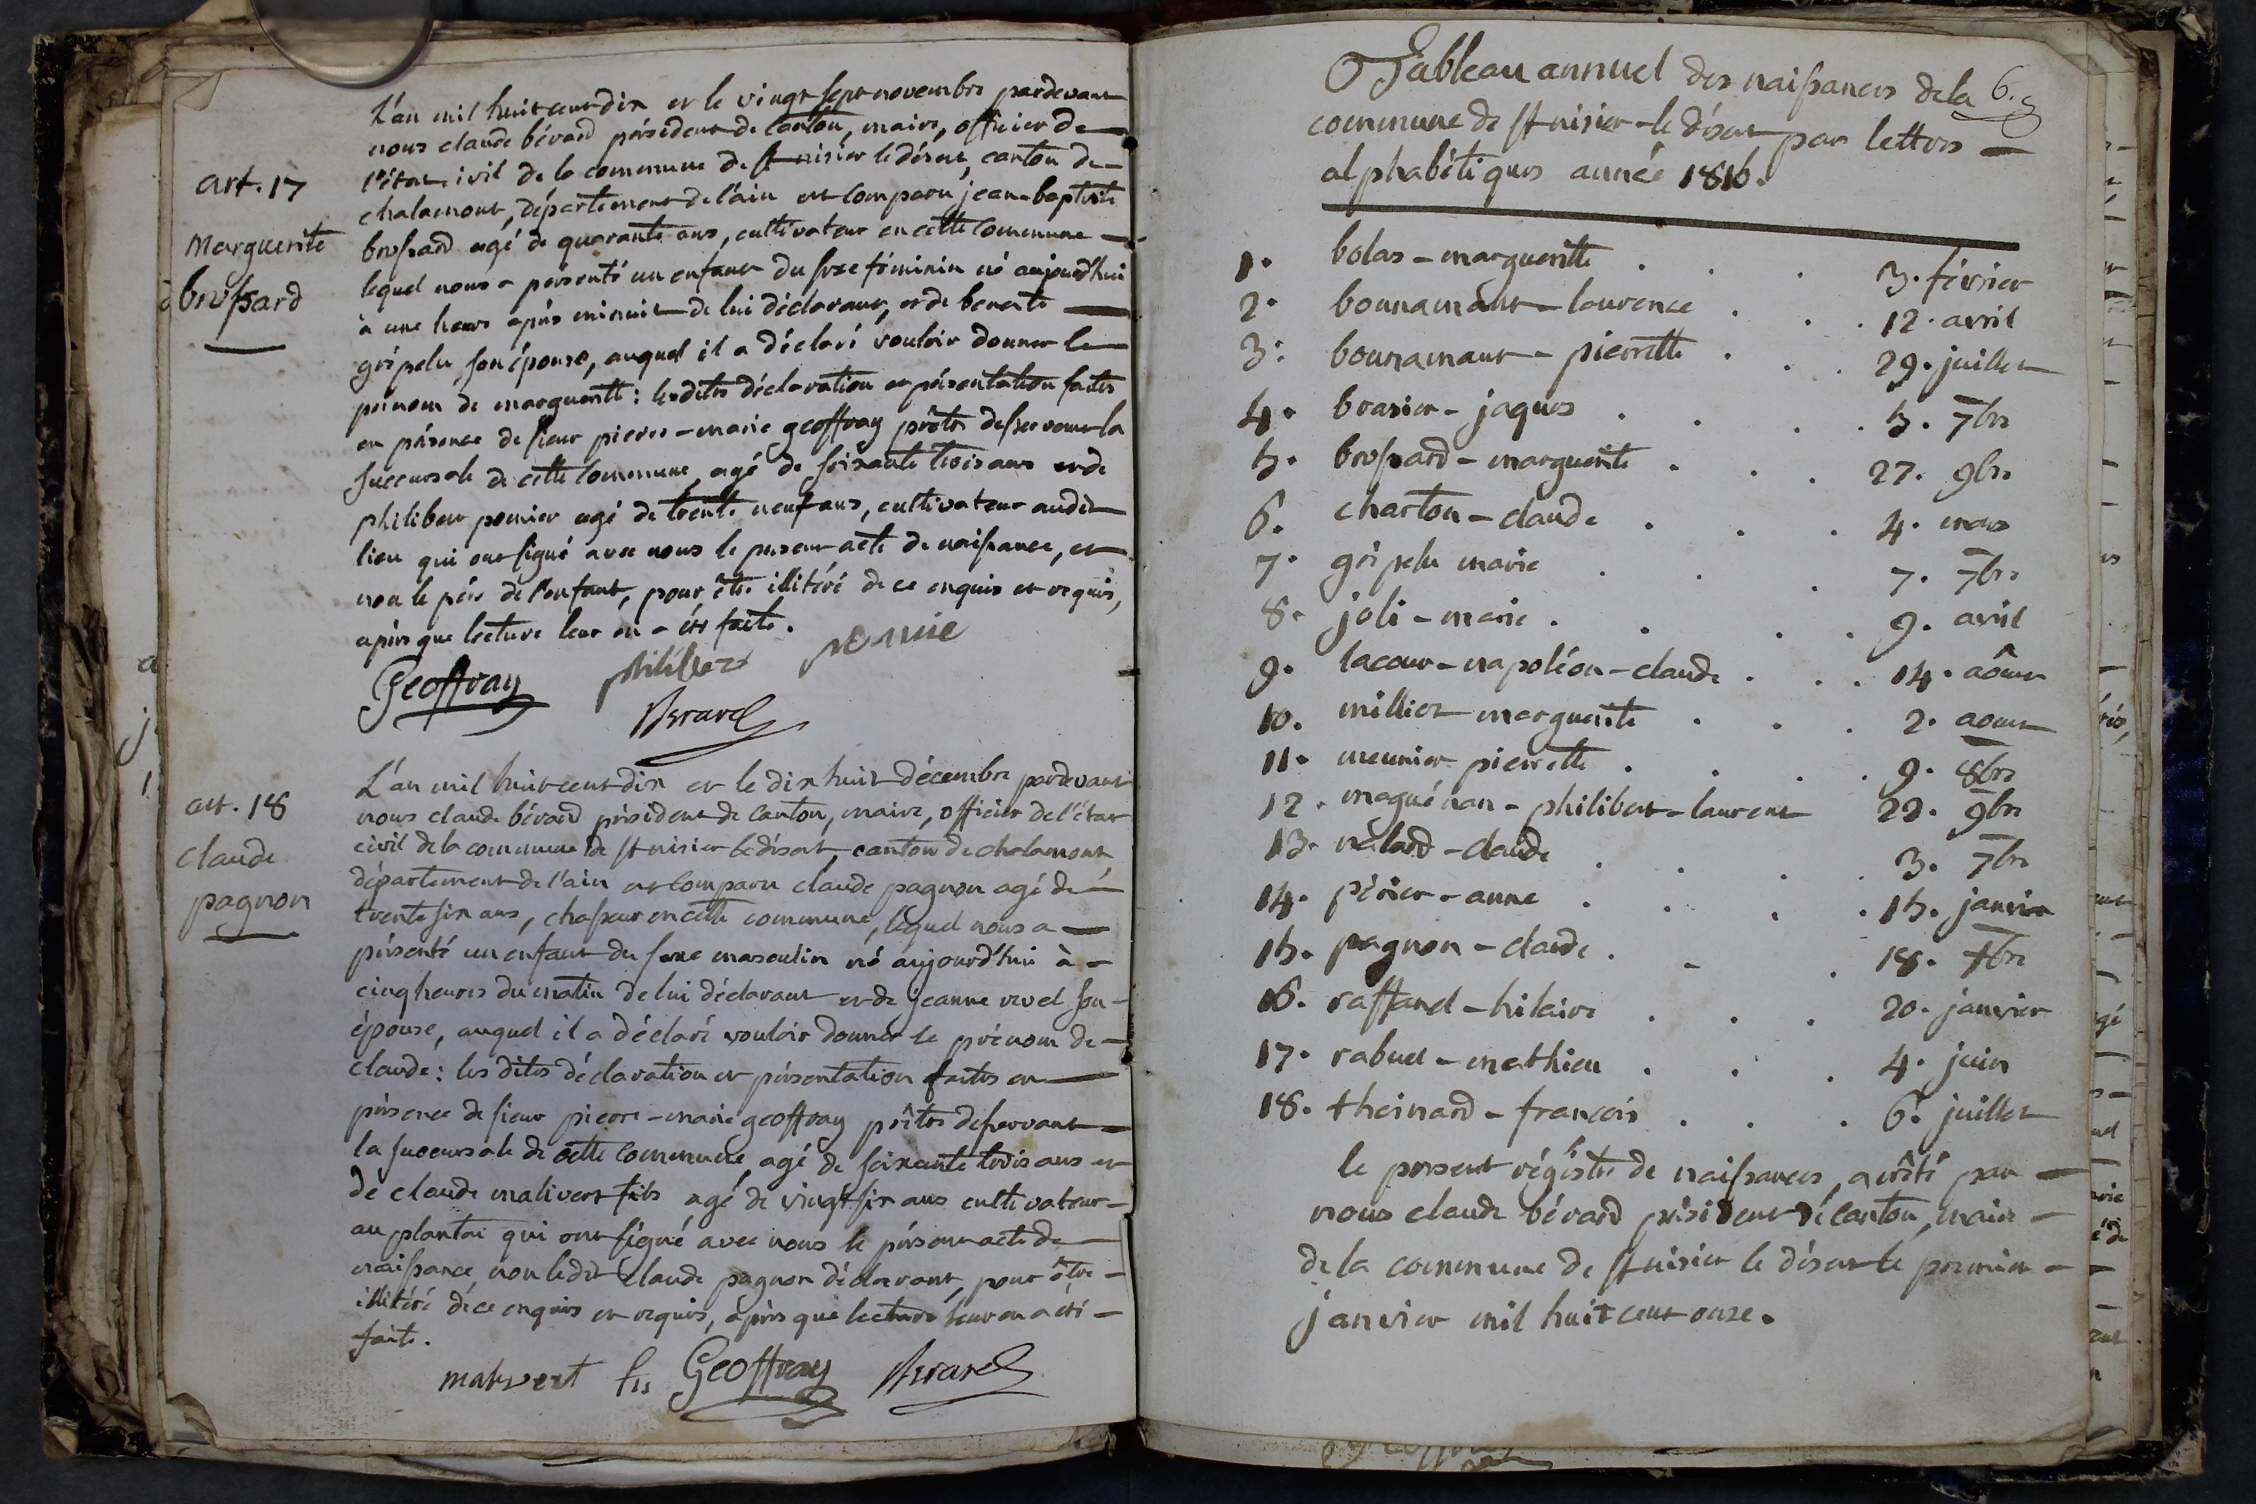 art. 17
Marguerite
broſsard
L'an mil huit cent dix et le vingt sept novembre pardevant
nous claude bérard président de canton, maire, officier de
l'état civil de la commune de st nisier le désert, canton de
chalamont, département de l'ain est comparu jean-baptiste
broſsard agé de quarante ans, cultivateur en cette commune
lequel nous a présenté un enfant du sexe féminin né aujourd'hui
à une heure après minuit de lui déclarant, et de benoite
gripelu son épouse, auquel il a déclaré vouloir donner le
prénom de marguerite : les dites déclaration et présentation faites
en présence de sieur pierre-marie geoffray prêtre deſservant la
succursale de cette commune, agé de soixante trois ans et de
philibert pomier agé de trente neuf ans, cultivateur audit
lieu qui ont signé avec nous le présent acte de naiſsance, et
non le père de l'enfant, pour être illitéré de ce enquis et requis,
après que lecture leur en a été faite.
Geoffray philibert pomie
Berard
art. 18
claude
pagnon
L'an mil huit cent dix et le dix huit décembre pardevant
nous claude bérard président de canton, maire, officier de l'état
civil de la commune de st nisier le désert, canton de chalamont,
département de l'ain est comparu claude pagnon agé de
trente six ans, chaſseur en cette commune, lequel nous a
présenté un enfant du sexe masculin né aujourd'hui à
cinq heures du matin de lui déclarant et de jeanne revel son
épouse, auquel il a déclaré vouloir donner le prénom de
claude : les dites déclaration et présentation faites en
présence de sieur pierre-marie geoffray prêtre deſservant
la succursale de cette commune, agé de soixante trois ans et
de claude malivert fils agé de vingt six ans cultivateur
au plantai qui ont signé avec nous le présent acte de
naiſsance, non ledit claude pagnon déclarant, pour être
illitéré de ce enquis et requis, après que lecture leur en a été
faite.
malivert fis Geoffray Berard
Tableau annuel des naiſsances de la 6.
commune de st nisier-le désert par lettres
alphabétiques année 1810.
1. bolas-marguerite . . . 3. février
2. bounamant-laurence . . . 12. avril
3. bounamant-pierrette . . . 29. juillet
4. brasier-jaques . . . 5. 7bre
5. broſsard-marguerite . . . 27. 9bre
6. charton-claude . . . 4. mars
7. gripelu marie . . . 7. 7bre
8. joli-marie . . . 9. avril
9. lacour-napoléon-claude . . . 14. aôut
10. milliet marguerite . . . 2. aout
11. meunier pierrette . . . 9. 8bre
12. maguénan-philibert-laurent 22. 9bre
13. nélard-claude . . . 3. 7bre
14. périer-anne . . . 15. janvier
15. pagnon-claude . . . 18. Xbre
16. raffanel-hilaire . . . 20. janvier
17. rabuel-mathieu . . . 4. juin
18. theinard-francois . . . 6. juillet
le présent régistre de naiſsances, arrêté par
nous claude bérard président de canton, maire
de la commune de st nisier le désert le premier
janvier mil huit cent onze.